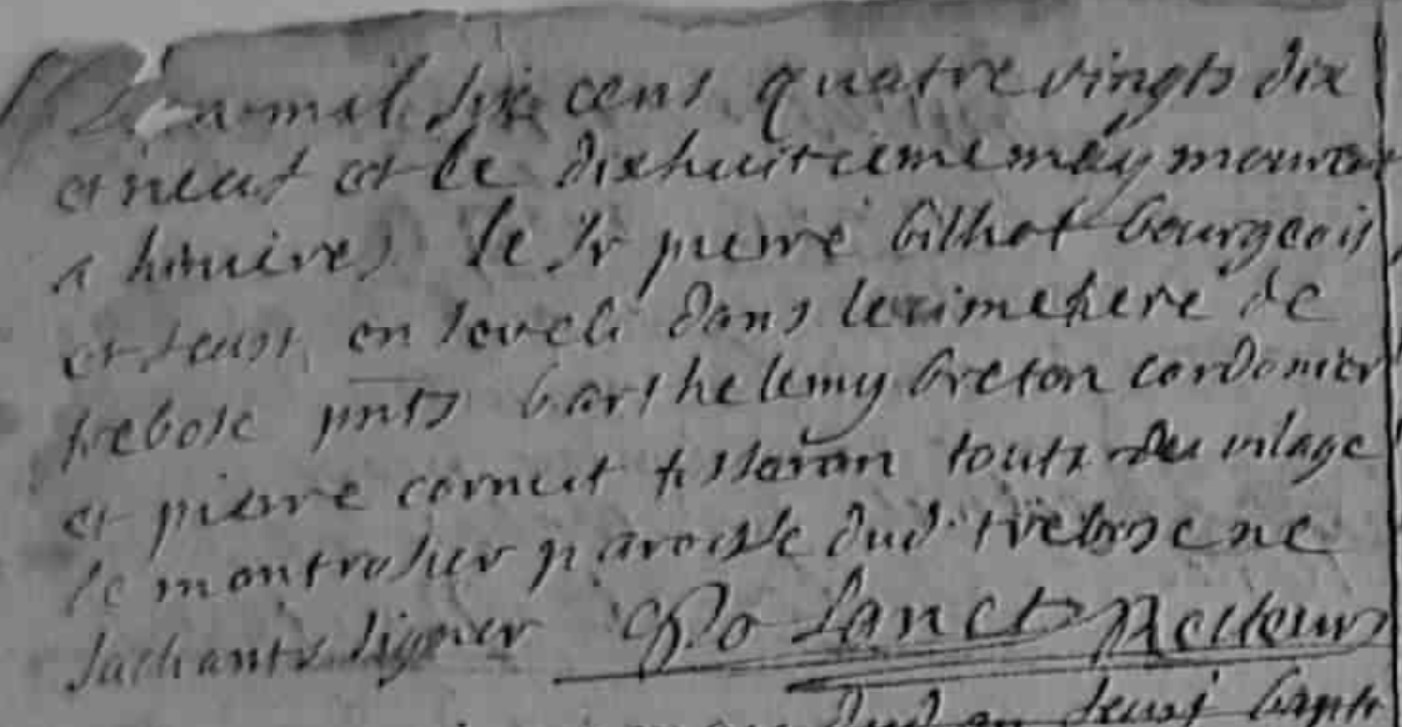 L'an mil six cens quatre vingts dix
et neuf et le dixhuitieme may mourut
a hinieres le Sr pierre bilhot bourgeois
et feust en seveli dans le cimetiere de
trebosc pnts barthelemy breton cordonier
et pierre cornut tisseran touts du vilage
de montrosier paroisse dud. trebosc ne
sachants signer Sanct Recteur
dud an feust bapt